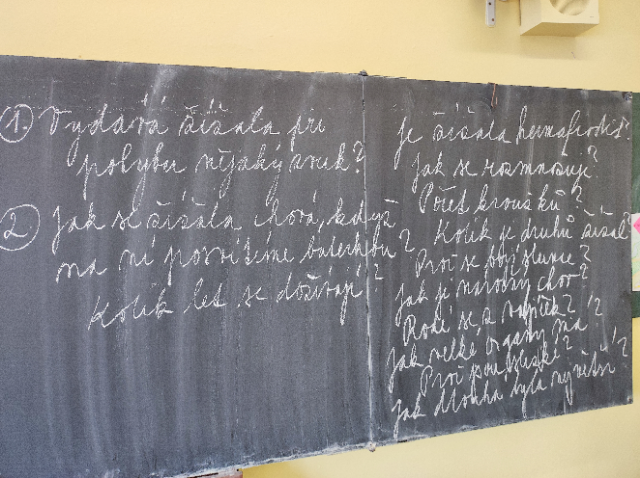 1. Vydává žížala při
pohybu nějaký zvuk?
2. Jak se žížala chová, když
na ní posvítíme baterkou?
Kolik let se dožívají?
Je žížala hermafrodit?
Jak se rozmnožuje?
Počet kroužků?
Kolik je druhů žížal?
Proč se bojí slunce?
Jak je náročný chov?
Rodí se z vajíček?
Jak velké orgány má?
Proč po
Jak dlouhá byla největší?